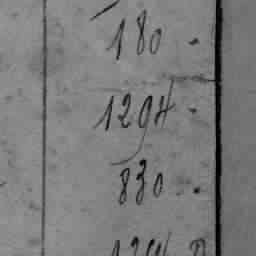 180 -
1294 -
830 .